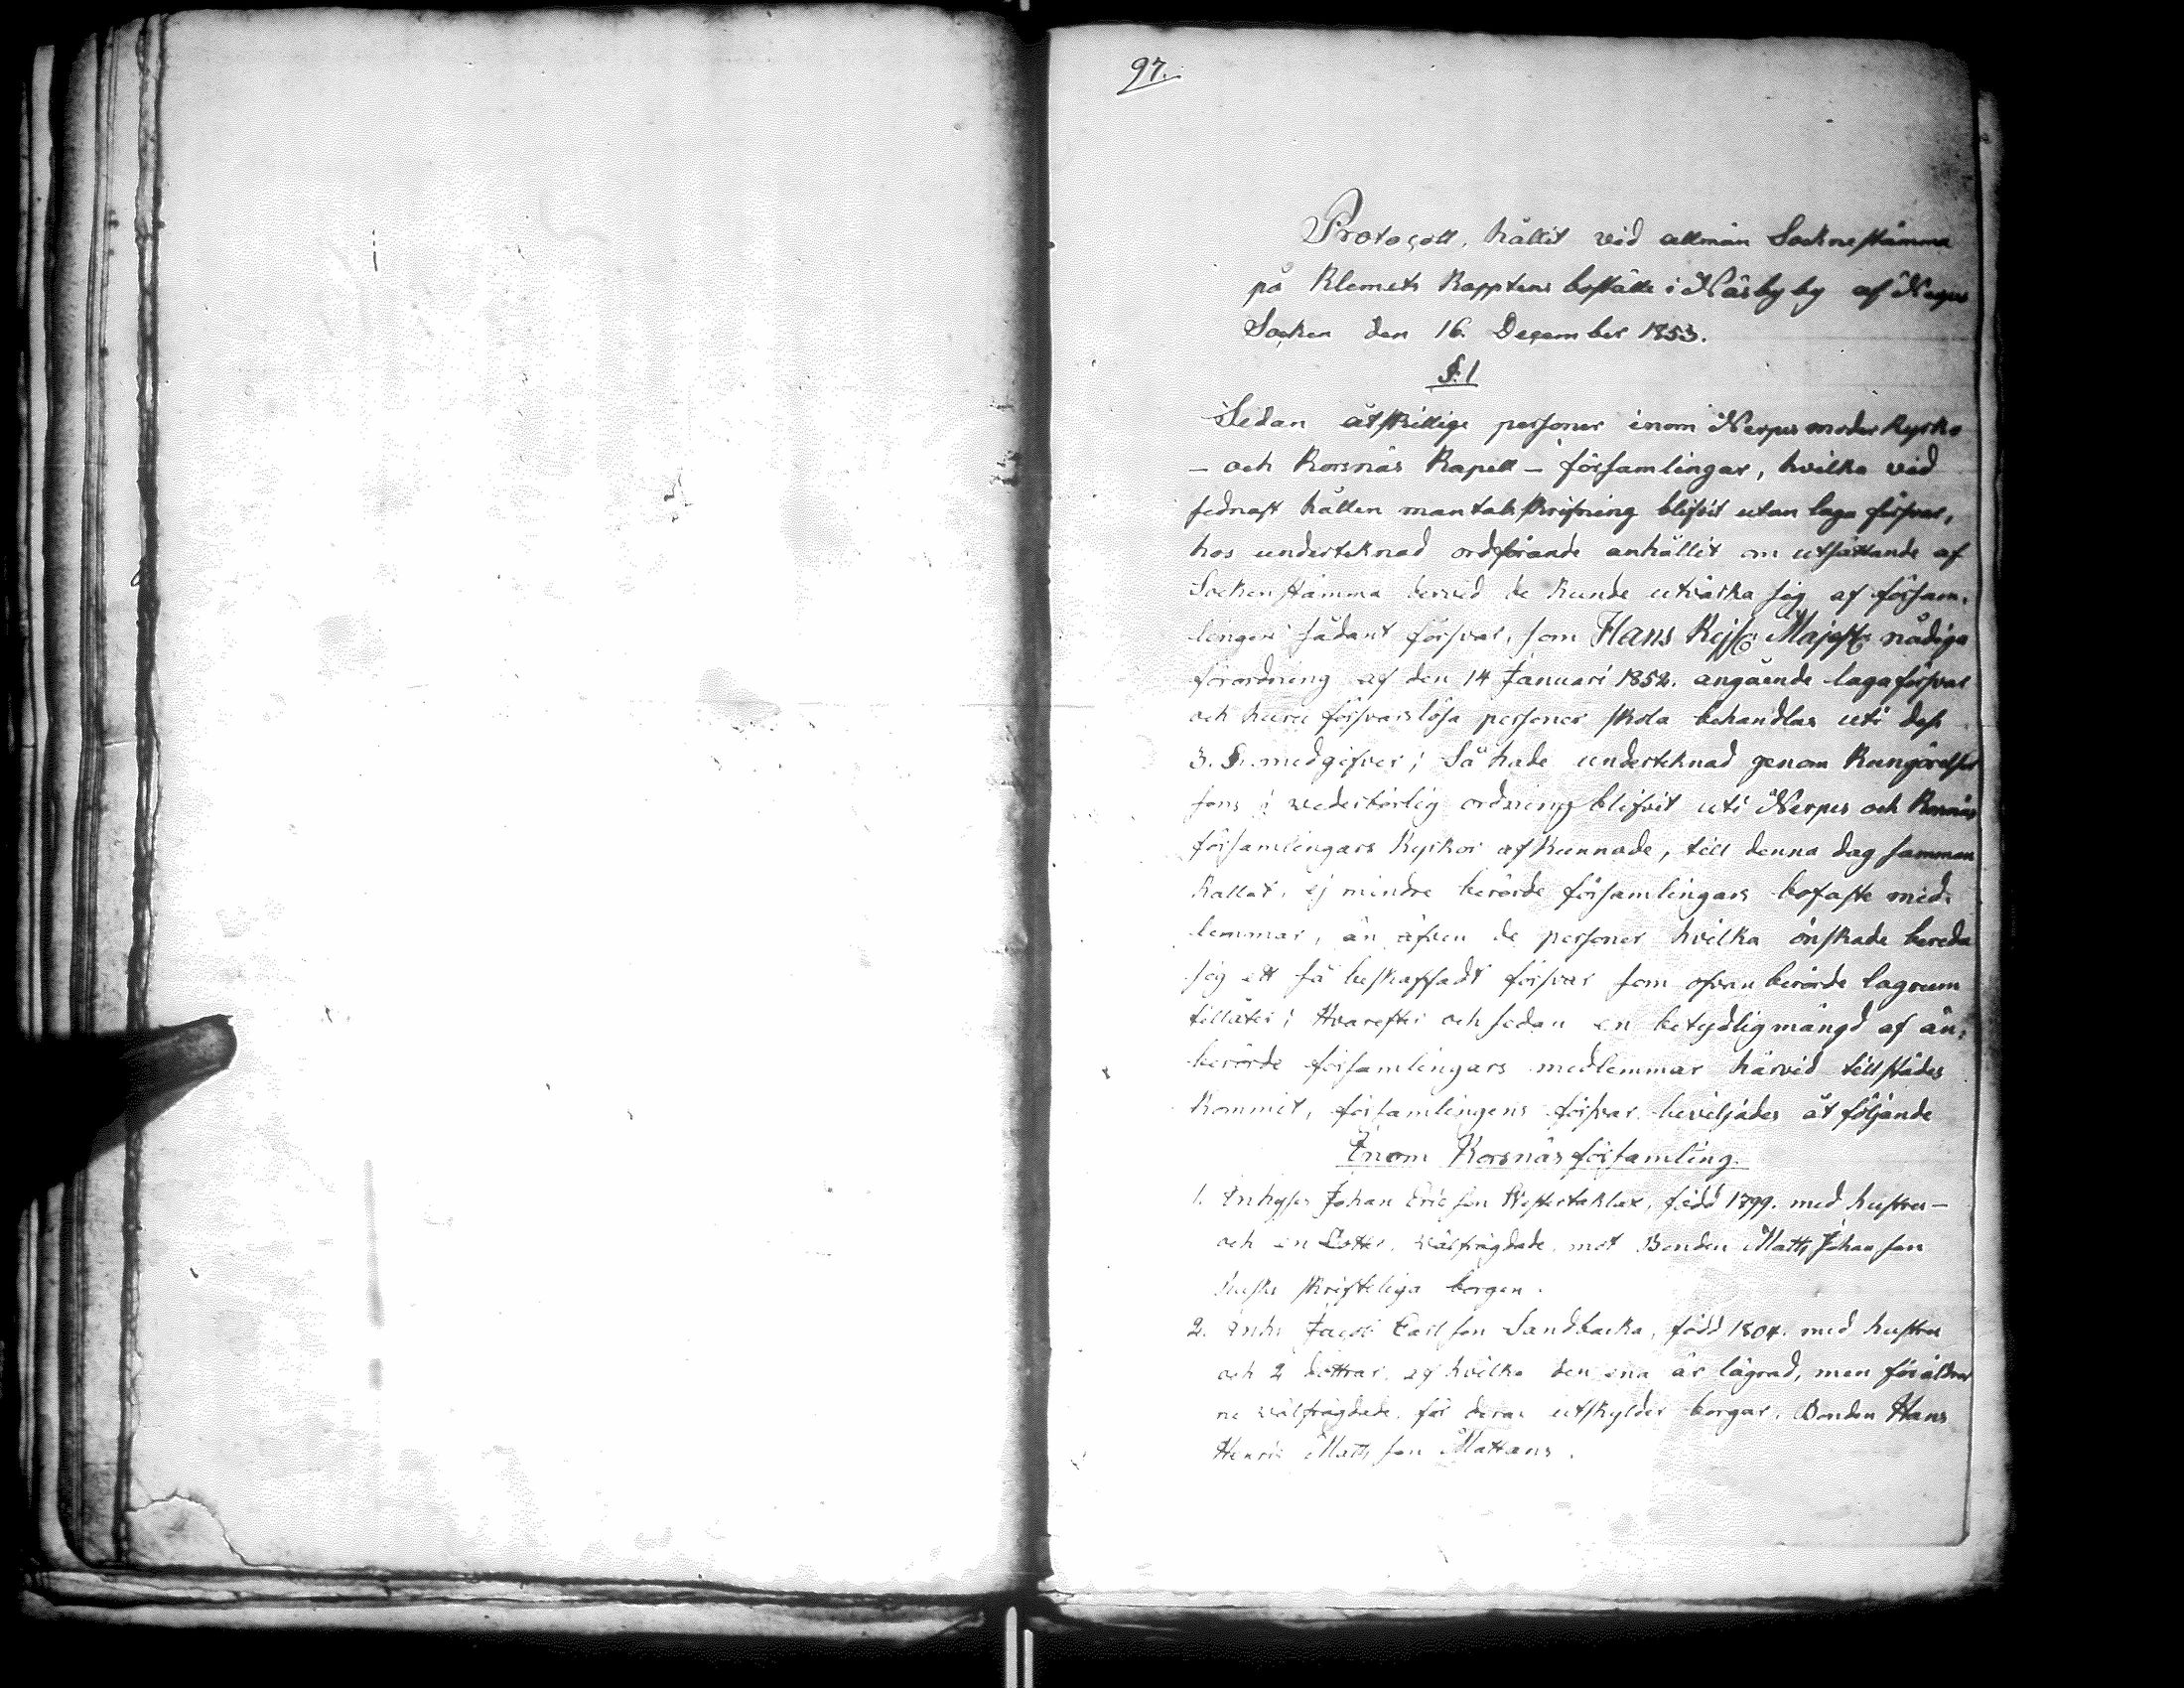 97.
Protocoll, hållit vid allmän Socknestämma
på Klemets Kapptens boställe i Näsby by af Nerpes
Socken den 16. December 1853.
§. 1
Sedan åtskillige personer inom Nerpes moder kyrko
- och Korsnäs Kapell - församlingar, hvilka vid
sednast hållen mantalsskrifning blifvit utan laga försvar,
hos undertecknad ordförande anhållit om utsättande af
Sockenstämma dervid de kunde utvärka sig af försam-
lingen sådant försvar, som Hans Kejs: Majest: nådiga
förordning af den 14 Januari 1852. angående laga försvar
och huru försvarslösa personer skola behandlas uti dess
3. §. medgifver; Så hade undertecknad genom Kungörelser
som i vederbörlig ordning blifvit uti Nerpes och Korsnäs
församlingars Kyrkor afkunnade, till denna dag samman
kallat, ej mindre berörde församlingars bofaste med-
lemmar, än äfven de personer hvilka önskade bereda
sig ett så beskaffadt försvar som ofvan berörde lagrum
tillåter; Hvarefter och sedan en betydlig mängd af än-
berörde församlingars medlemmar härvid tillstädes
kommit, församlingens försvar beviljades åt följande
Inom Korsnäs församling.
1. Inhyses Johan Ericsson Westertaklax, född 1799. med hustru -
och en dotter, välfrägdade, mot Bonden Matts Johansson
skrifteliga borgen.
2. Inh: Jacob Carlsson Sandbacka, född 1804. med hustru
och 2 döttrar, af hvilka den ena är lägrad, men föräldrar
ne välfrägdade, för deras utskylder borgar, Bonden Hans
Henric Mattsson Mattans.